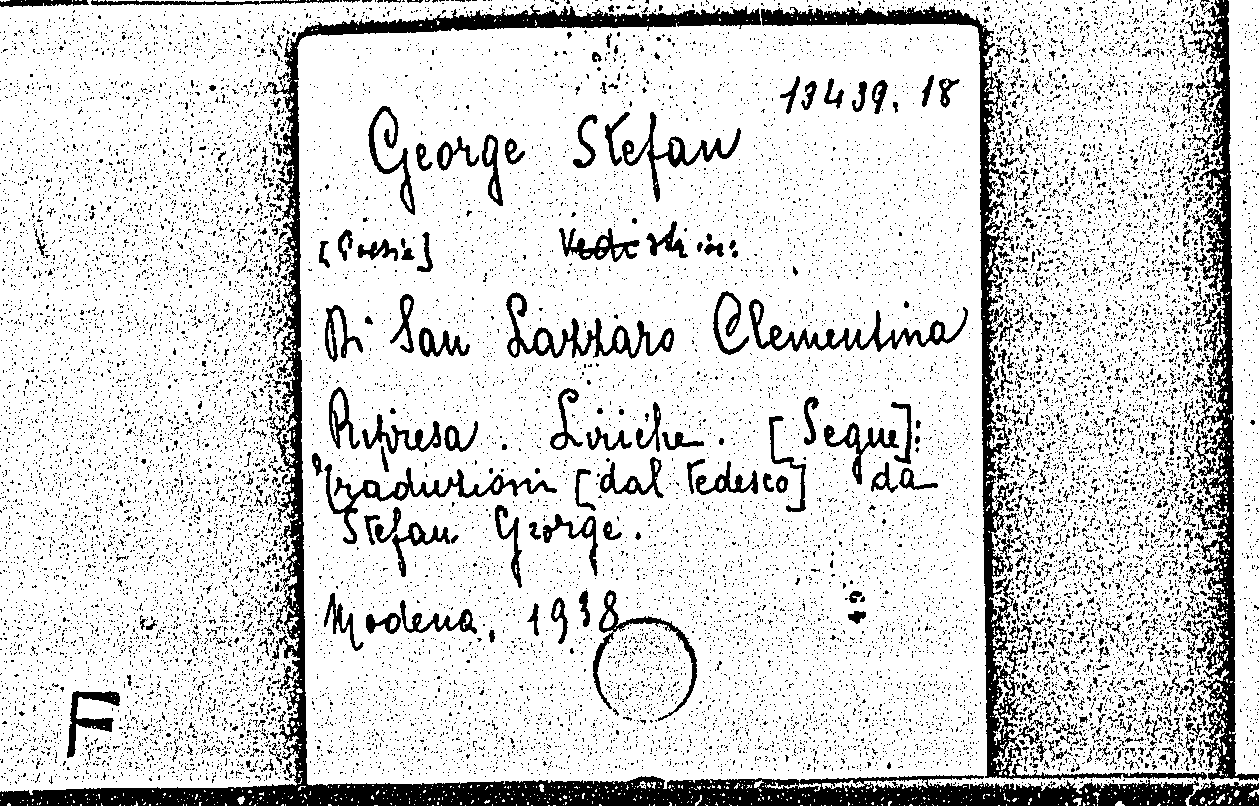 13439. 18
George Stefan
[Poesie]
in:
Di San Lazzaro Clementina
Ripresa. Liriche. [Segue]:
Traduzioni [dal tedesco] da
Stefan George.
Modena, 1938
F